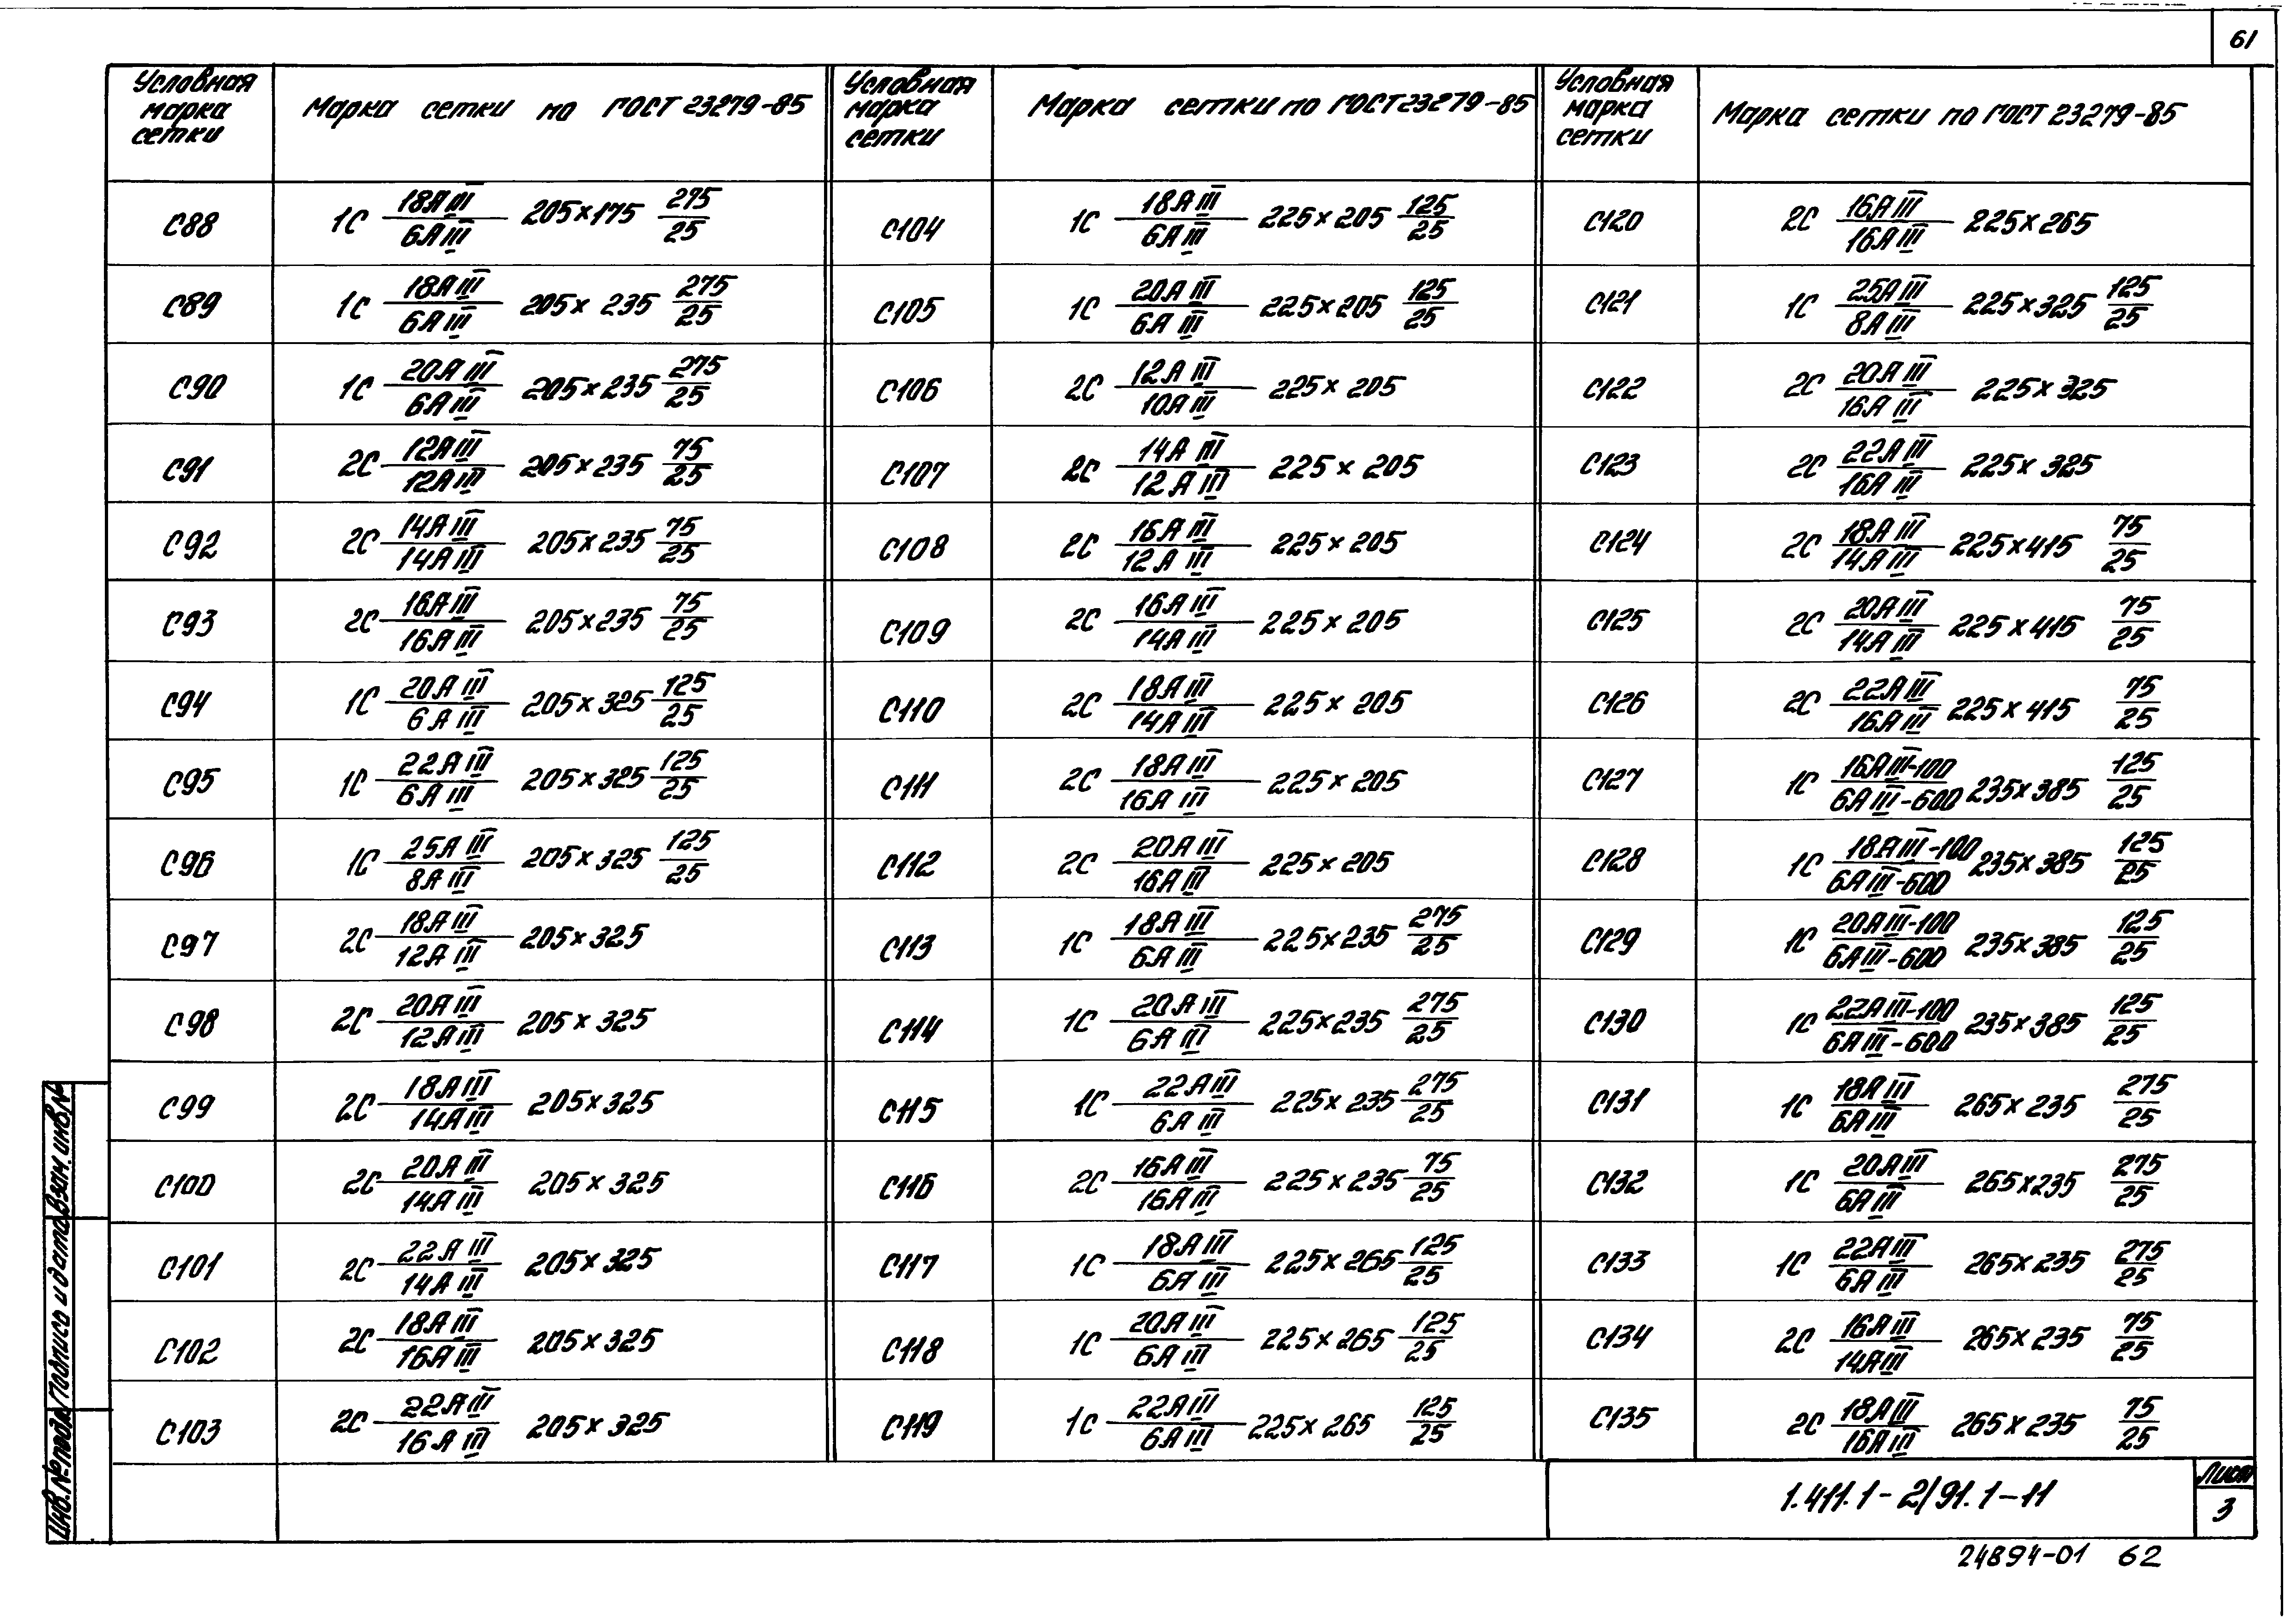 61
Условная марка сетки | Марка сетки по ГОСТ 23279-85 | Условная марка сетки | Марка сетки по ГОСТ 23279-85 | Условная марка сетки | Марка сетки по ГОСТ 23279-85
С88 | 1С 18АIII/6АIII 205×175 275/25 | С104 | 1С 18АIII/6АIII 225×205 125/25 | С120 | 2С 16АIII/16АIII 225×265
С89 | 1С 18АIII/6АIII 205×235 275/25 | С105 | 1С 20АIII/6АIII 225×205 125/25 | С121 | 1С 25АIII/8АIII 225×325 125/25
С90 | 1С 20АIII/6АIII 205×235 275/25 | С106 | 2С 12АIII/10АIII 225×205 | С122 | 2С 20АIII/16АIII 225×325
С91 | 2С 12АIII/12АIII 205×235 75/25 | С107 | 2С 14АIII/12АIII 225×205 | С123 | 2С 22АIII/16АIII 225×325
С92 | 2С 14АIII/14АIII 205×235 75/25 | С108 | 2С 16АIII/12АIII 225×205 | С124 | 2С 18АIII/14АIII 225×415 75/25
С93 | 2С 16АIII/16АIII 205×235 75/25 | С109 | 2С 16АIII/14АIII 225×205 | С125 | 2С 20АIII/14АIII 225×415 75/25
С94 | 1С 20АIII/6АIII 205×325 125/25 | С110 | 2С 18АIII/14АIII 225×205 | С126 | 2С 22АIII/16АIII 225×415 75/25
С95 | 1С 22АIII/6АIII 205×325 125/25 | С111 | 2С 18АIII/16АIII 225×205 | С127 | 1С 16АIII-100/6АIII-600 235×385 125/25
С96 | 1С 25АIII/8АIII 205×325 125/25 | С112 | 2С 20АIII/16АIII 225×205 | С128 | 1С 18АIII-100/6АIII-600 235×385 125/25
С97 | 2С 18АIII/12АIII 205×325 | С113 | 1С 18АIII/6АIII 225×235 275/25 | С129 | 1С 20АIII-100/6АIII-600 235×385 125/25
С98 | 2С 20АIII/12АIII 205×325 | С114 | 1С 20АIII/6АIII 225×235 275/25 | С130 | 1С 22АIII-100/6АIII-600 235×385 125/25
С99 | 2С 18АIII/14АIII 205×325 | С115 | 1С 22АIII/6АIII 225×235 275/25 | С131 | 1С 18АIII/6АIII 265×235 275/25
С100 | 2С 20АIII/14АIII 205×325 | С116 | 2С 16АIII/16АIII 225×235 75/25 | С132 | 1С 20АIII/6АIII 265×235 275/25
С101 | 2С 22АIII/14АIII 205×325 | С117 | 1С 18АIII/6АIII 225×265 125/25 | С133 | 1С 22АIII/6АIII 265×235 275/25
С102 | 2С 18АIII/16АIII 205×325 | С118 | 1С 20АIII/6АIII 225×265 125/25 | С134 | 2С 16АIII/14АIII 265×235 75/25
С103 | 2С 22АIII/16АIII 205×325 | С119 | 1С 22АIII/6АIII 225×265 125/25 | С135 | 2С 18АIII/16АIII 265×235 75/25
Инв.№подл. Подпись и дата Взам.инв.№
1.411.1-2/91.1-11
Лист
3
24894-01 62